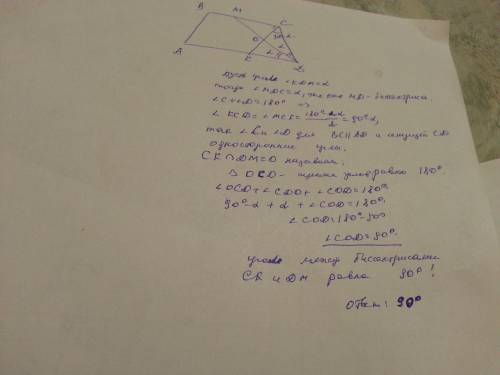 B M C
O
A K D
пусть угол ∠KDM=α
тогда ∠MDC=α, так как MD-биссектриса
∠C+∠D=180° =>
∠KCD=∠MCK=180°-2α/2=90°-α,
так ∠C и ∠D для BC||AD и секущей CD
односторонние углы.
CK∩DM=O назовём.
△OCD- сумма углов равна 180°.
∠OCD+∠CDO+∠COD=180°
90°-α+α+∠COD=180°
∠COD=180°-90°
∠COD=90°
угол между биссектрисами
CK и DM равна 90°!
Ответ: 90°